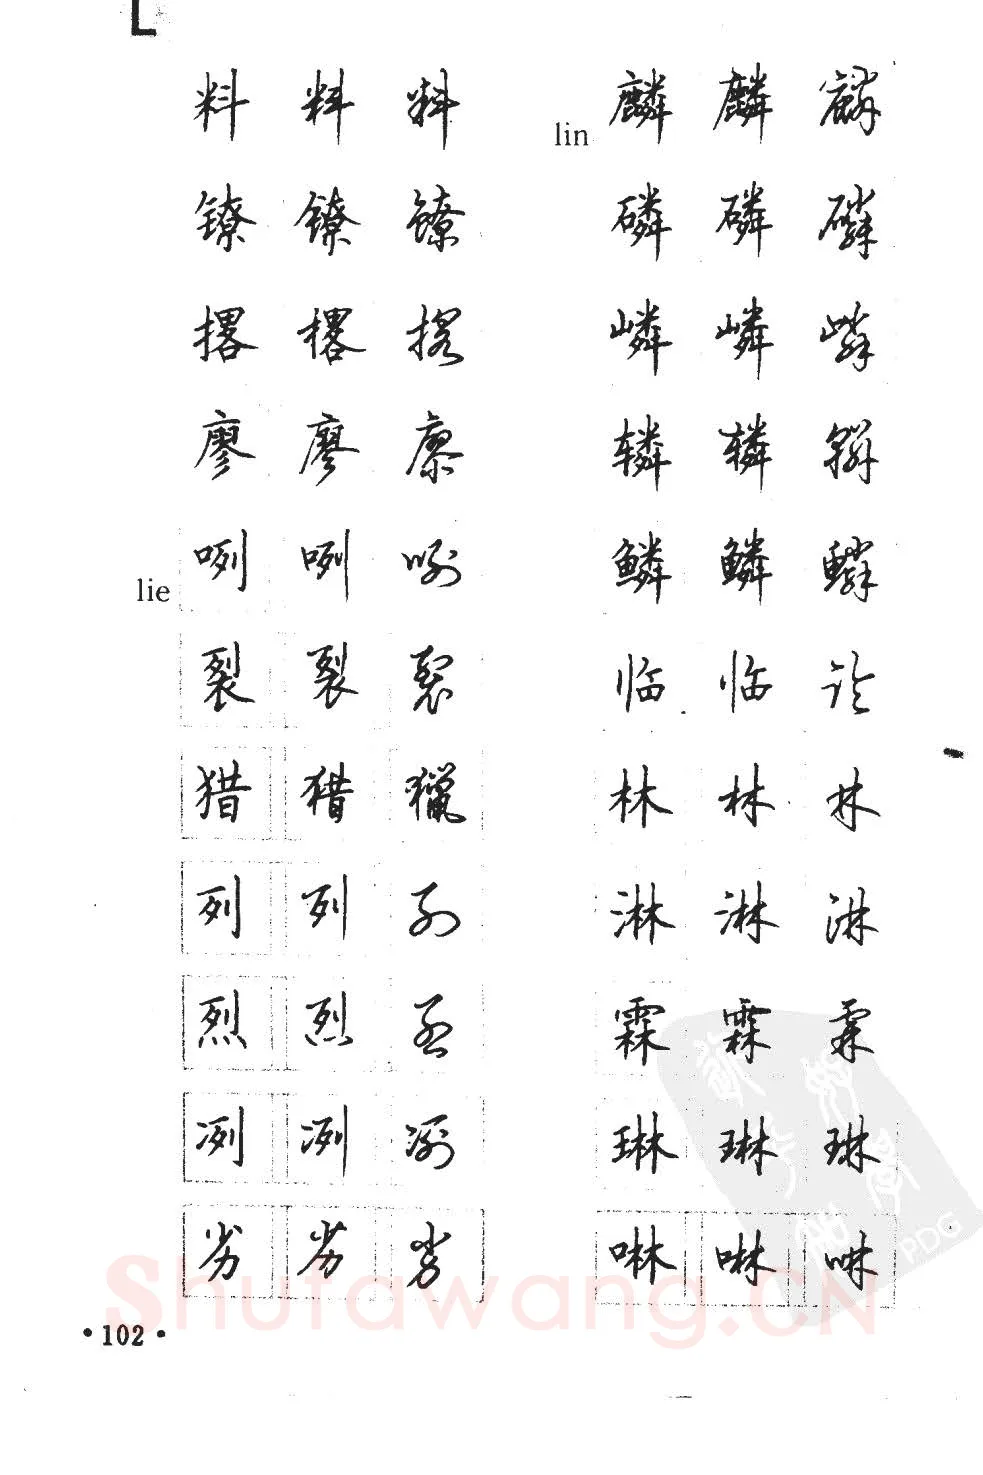 L
料 料 料
镣 镣 镣
撂 撂 撂
廖 廖 廖
lie
咧 咧 咧
裂 裂 裂
猎 猎 獵
列 列 列
烈 烈 烈
冽 冽 冽
劣 劣 劣
lin
麟 麟 麟
磷 磷 磷
嶙 嶙 嶙
辚 辚 辚
鳞 鳞 鳞
临 临 临
林 林 林
淋 淋 淋
霖 霖 霖
琳 琳 琳
啉 啉 啉
PDG
Shufawang.CN
·102·